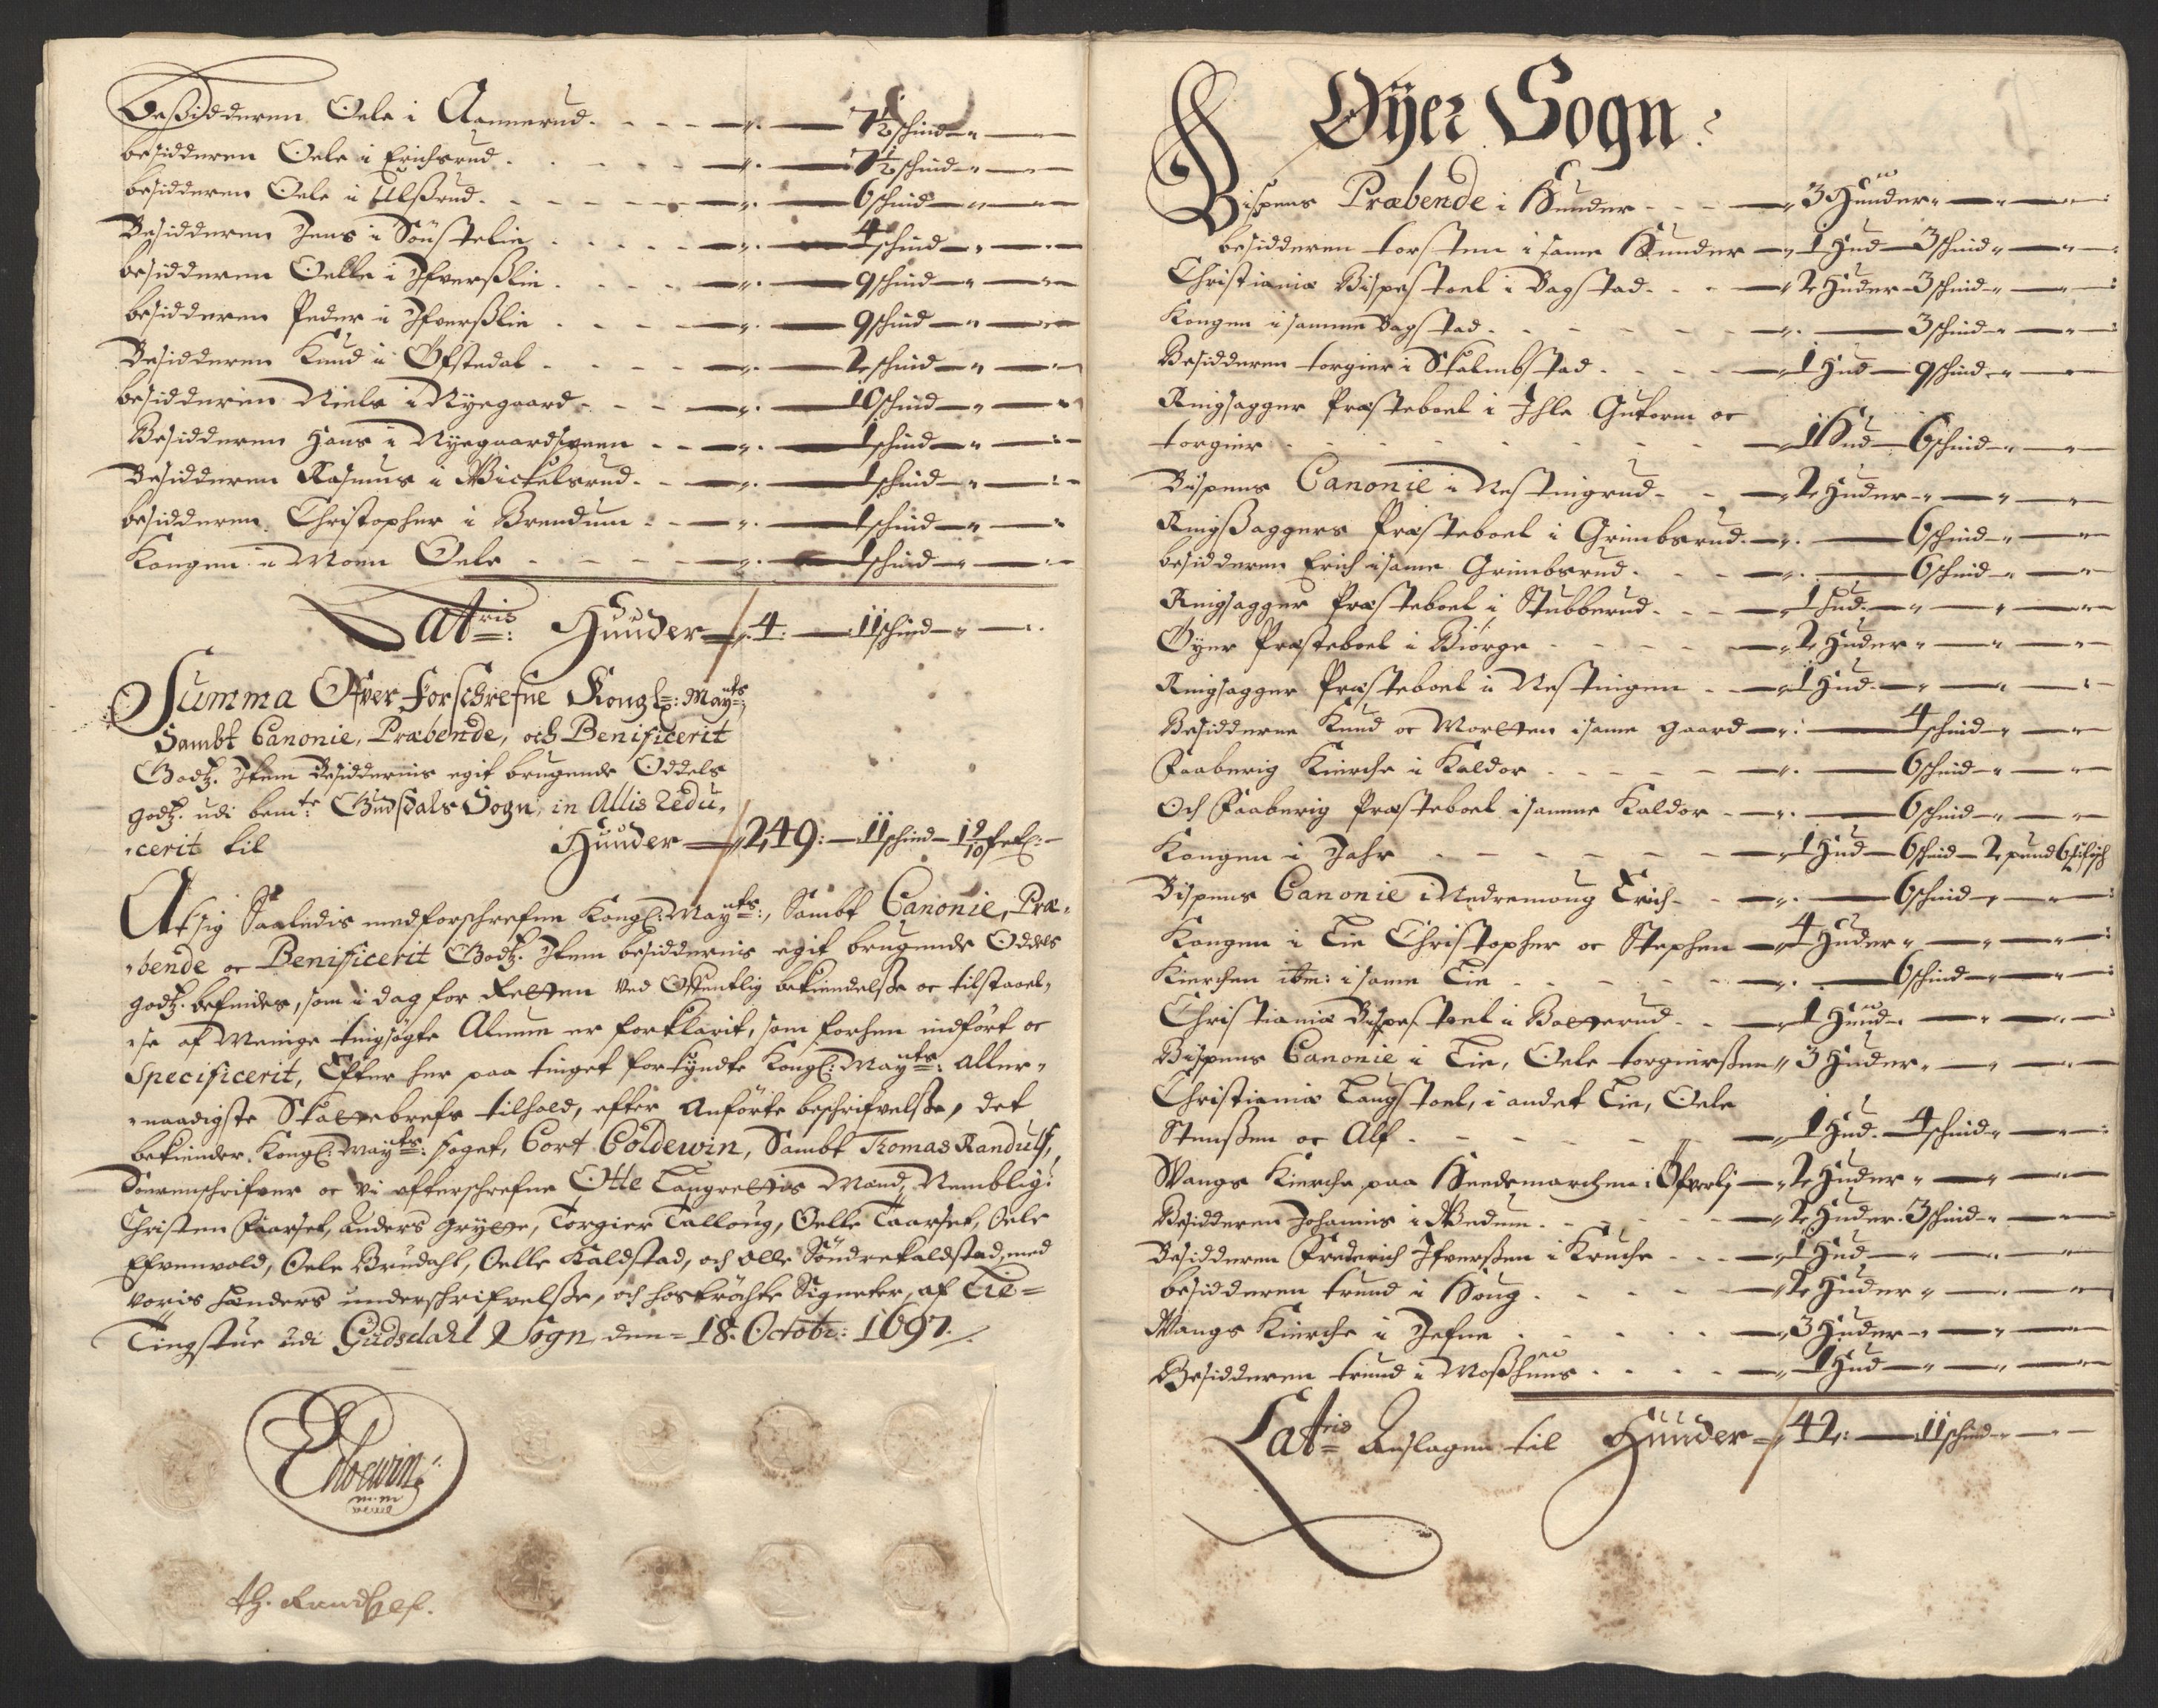 Besidderen Oele i Aannerud - - - „ — 7½ schind — „ —
besidderen Oele i Erichsrud - - - „ — 7½ schind — „ —
besidderen Oele i Ulßrud - - - „ — 6 schind — „ —
Besidderen Jens i Sönstelie - - - „ — 4 schind — „ —
besidderen Oelle i Ifverßlie - - - „ — 9 schind — „ —
besidderen Peder i Ifverßlie - - - „ — 9 schind — „ —
Besidderen Knud i Ofstedal - - - „ — 2 schind — „ —
besidderen Niels i Nyegaard - - - „ — 10 schind — „ —
Besidderen Hans i Nyegaardsveen - - - „ — 1 schind — „ —
Besidderen Rasmus i Wickelsrud - - - „ — 1 schind — „ —
besidderen Christopher i Brendum - - - „ — 1 schind — „ —
Kongen i Moen Oele - - - „ — 1 schind — „ —
Latris: Huuder — 4: — 11 schind — „ —
Summa Ofver forschrefne Kongl: Mayts:
Sambt Canonie, Præbende, och Benificerit
Godtz. Item Besiddernis egit brugende Oddels
godtz. udi bemte: Gudsdals Sogn, in Allis redu„
„cerit til Huuder — 249: — 11 schind — 1 9/10 fel: —
At sig Saaledis med forschrefne Kongl: Mayts:, Sambt Canonie, Præ„
„bende oc Benificerit Godtz. Item besiddernis egit brugende Oddels
godtz. befindes, som i dag for Retten ved Offentlig bekiendelse oc tilstaael„
„se af Menige tingsögte Almue er forklarit, som forhen indfört oc
Specificerit, Efter her paa tinget forkyndte Kongl: Mayts: Aller„
„naadigste Skattebrefs tilhold, efter Anförte beschrifvelse, det
bekiender Kongl: Mayts: foget, Cort Coldewin, Sambt Thomas Randulf,
Sorenschrifver oc vi efterschrefne Otte Laugrettis Mænd, Nemblig:
Christen Faarset, Anders Grytte, Torgier Talloug, Oelle Taarset, Oele
Efvenvold, Oele Brudahl, Oelle Kaldstad, och Olle Söndrekaldstad, med
voris hænders underschrifvelse, och hoströchte Signeter, af Lie=
Tingstue udi Gudsdahl Sogn den= 18. Octobr: 1697.
Coldewin
m.m
Th. Randulf.
Öyer Sogn:
Bispens Præbende i Hunder - - - „ 3 Huuder „ — „ —
besidderen torsten i same Hunder — „ 1 Hud — 3 schind „ —
Christianiæ Bispestoel i Bagstad - - - „ 2 Huder — 3 schind „ —
Kongen i samme Bagstad - - - „ — 3 schind — „ —
Besidderen torgier i Skalmbstad - - - „ 1 Hud — 9 schind — „ —
Ringsagger Præsteboel i Ihle Guttorm oc
torgier - - - „ 1 Hud — 6 schind — „ —
Bispens Canonie i Nestingrud - - - „ 2 Huder „ — „ —
Ringßaggers Præsteboel i Grimbsrud - - - „ — 6 schind — „ —
besidderen Erich i same Grimbsrud - - - „ — 6 schind — „ —
Ringsagger Præsteboel i Stubberud - - - „ 1 Hud — „ — „ —
Öyer Præsteboel i Biörge - - - „ 2 Huder „ — „ —
Ringsagger Præsteboel i Nestingen - - - „ 1 Hud — „ — „ —
Besidderne Knud oc Morthen i same gaard — „ — 4 schind — „ —
Faaberig Kierche i Kaldor - - - „ — 6 schind — „ —
Och Faaberig Præsteboel i samme Kaldor - - - „ — 6 schind — „ —
Kongen i Jahr - - - „ 1 Hud — 6 schind — 2 pund 6 fiesch
Bispens Canonie i Nedremoug Erich - - - „ — 6 schind — „ —
Kongen i Lie Christopher oc Stephen — „ 4 Huder „ — „ —
Kierchen ibm: i same Lie - - - „ — 6 schind — „ —
Christianiæ Bispestoel i Botterud - - - „ 1 Huud — „ — „ —
Bispens Canonie i Lie, Oele torgierßen „ 3 Huder „ — „ —
Christianiæ Laugstoel, i andet Lie, Oele
Stenßen oc Alf - - - „ 1 Hud — 4 schind „ —
Wangs Kierche paa Heedemarchen i Öfverlj — „ 2 Huder „ — „ —
Besidderen Johannis i Wedum - - - „ 2 Huder 3 schind — „ —
Besidderen Frederich Ifverßen i Kruche - - - „ 1 Hud — „ — „ —
besidderen trund i Houg - - - „ 2 Huder „ — „ —
Wangs Kierche i Jefne - - - „ 3 Huder — „ — „ —
Besidderen trund i Moßhuus - - - „ 1 Hud — „ — „ —
Latris Anslagen til Huuder — 42: — 11 schind — „ —